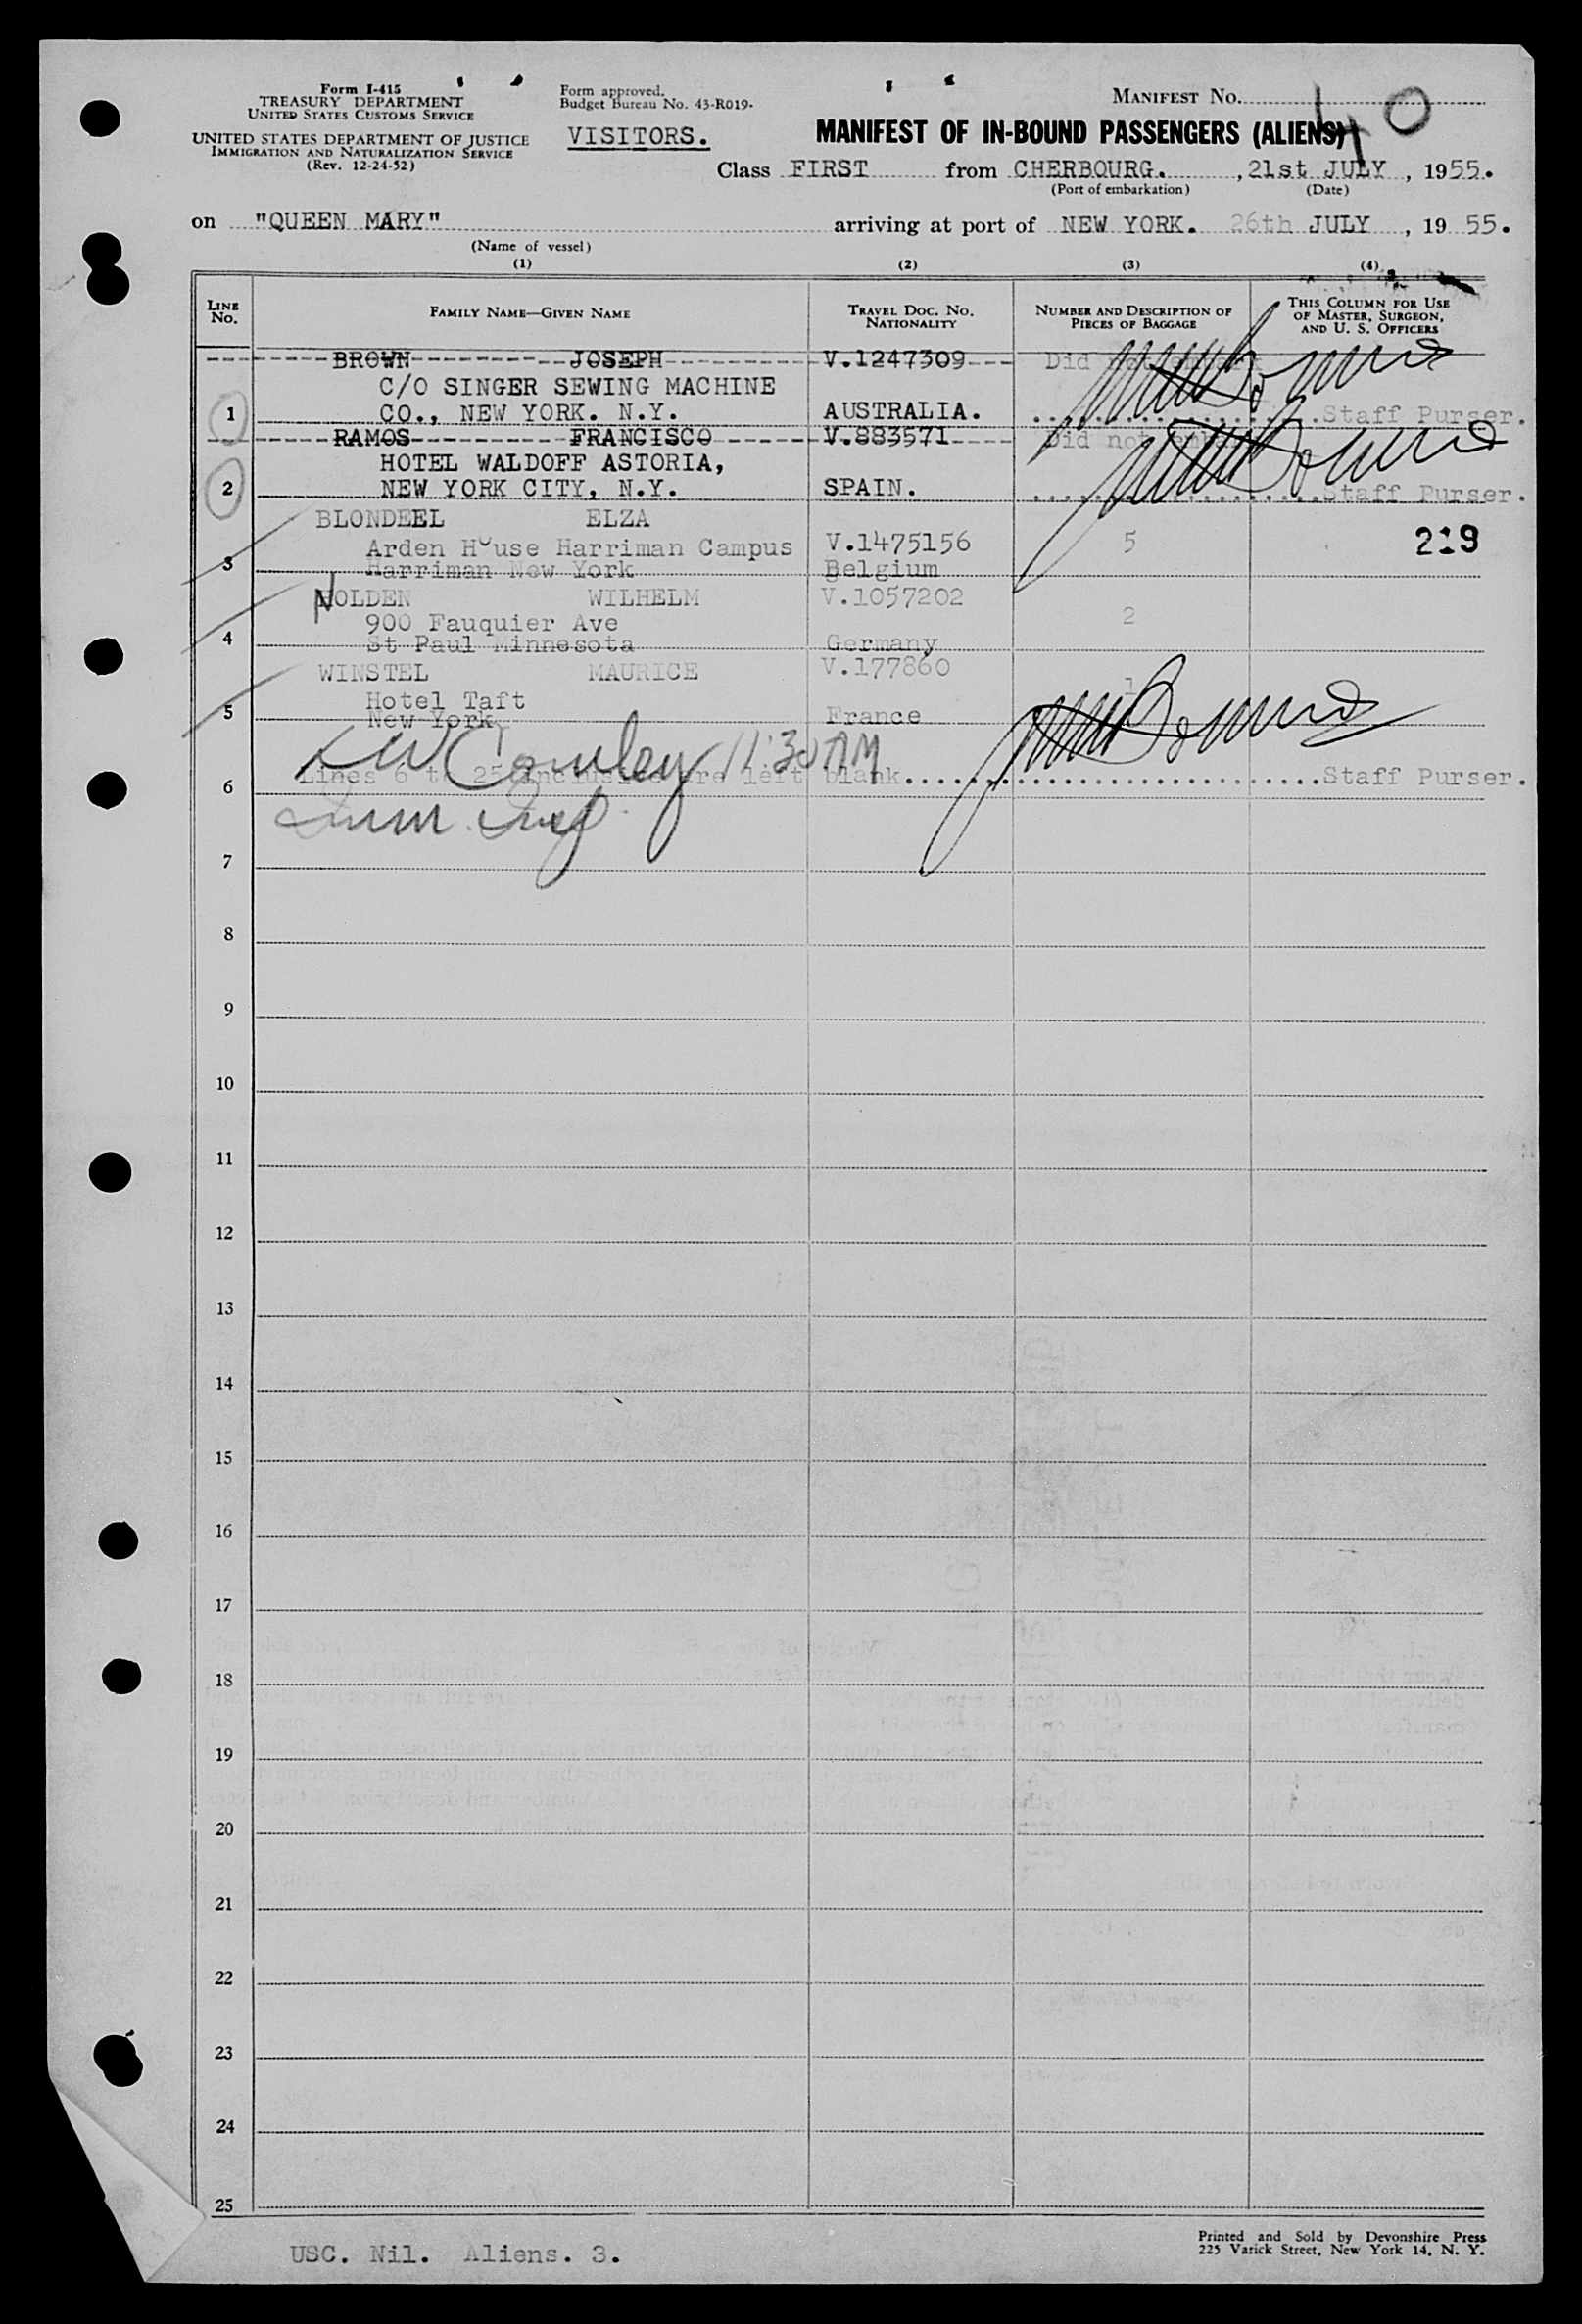 Form I-415
TREASURY DEPARTMENT
UNITED STATES CUSTOMS SERVICE
UNITED STATES DEPARTMENT OF JUSTICE
IMMIGRATION AND NATURALIZATION SERVICE
(Rev. 12-24-52)
Form approved.
Budget Bureau No. 43-R019.
VISITORS.
MANIFEST NO. 40
MANIFEST OF IN-BOUND PASSENGERS (ALIENS)
Class FIRST from CHERBOURG. , 21st JULY , 1955.
(Port of embarkation) (Date)
on "QUEEN MARY" arriving at port of NEW YORK. 26th JULY , 19 55.
(Name of vessel)
(1) (2) (3) (4)
LINE NO.
FAMILY NAME—GIVEN NAME
TRAVEL DOC. NO. NATIONALITY
NUMBER AND DESCRIPTION OF PIECES OF BAGGAGE
THIS COLUMN FOR USE OF MASTER, SURGEON, AND U. S. OFFICERS
BROWN JOSEPH V.1247309 Did not embark
C/O SINGER SEWING MACHINE
1 CO., NEW YORK. N.Y. AUSTRALIA. Staff Purser.
RAMOS FRANCISCO V.883571 Did not embark
HOTEL WALDOFF ASTORIA,
2 NEW YORK CITY, N.Y. SPAIN. Staff Purser.
BLONDEEL ELZA
Arden House Harriman Campus V.1475156 5 219
3 Harriman New York Belgium
HOLDEN WILHELM V.1057202
900 Fauquier Ave 2
4 St Paul Minnesota Germany
WINSTEL MAURICE V.177860
Hotel Taft 1
5 New York France
11:30 AM
6 Lines 6 to 25 inclusive are left blank. Staff Purser.
Imm. Insp.
7
8
9
10
11
12
13
14
15
16
17
18
19
20
21
22
23
24
25
USC. Nil. Aliens. 3.
Printed and Sold by Devonshire Press
225 Varick Street, New York 14, N. Y.